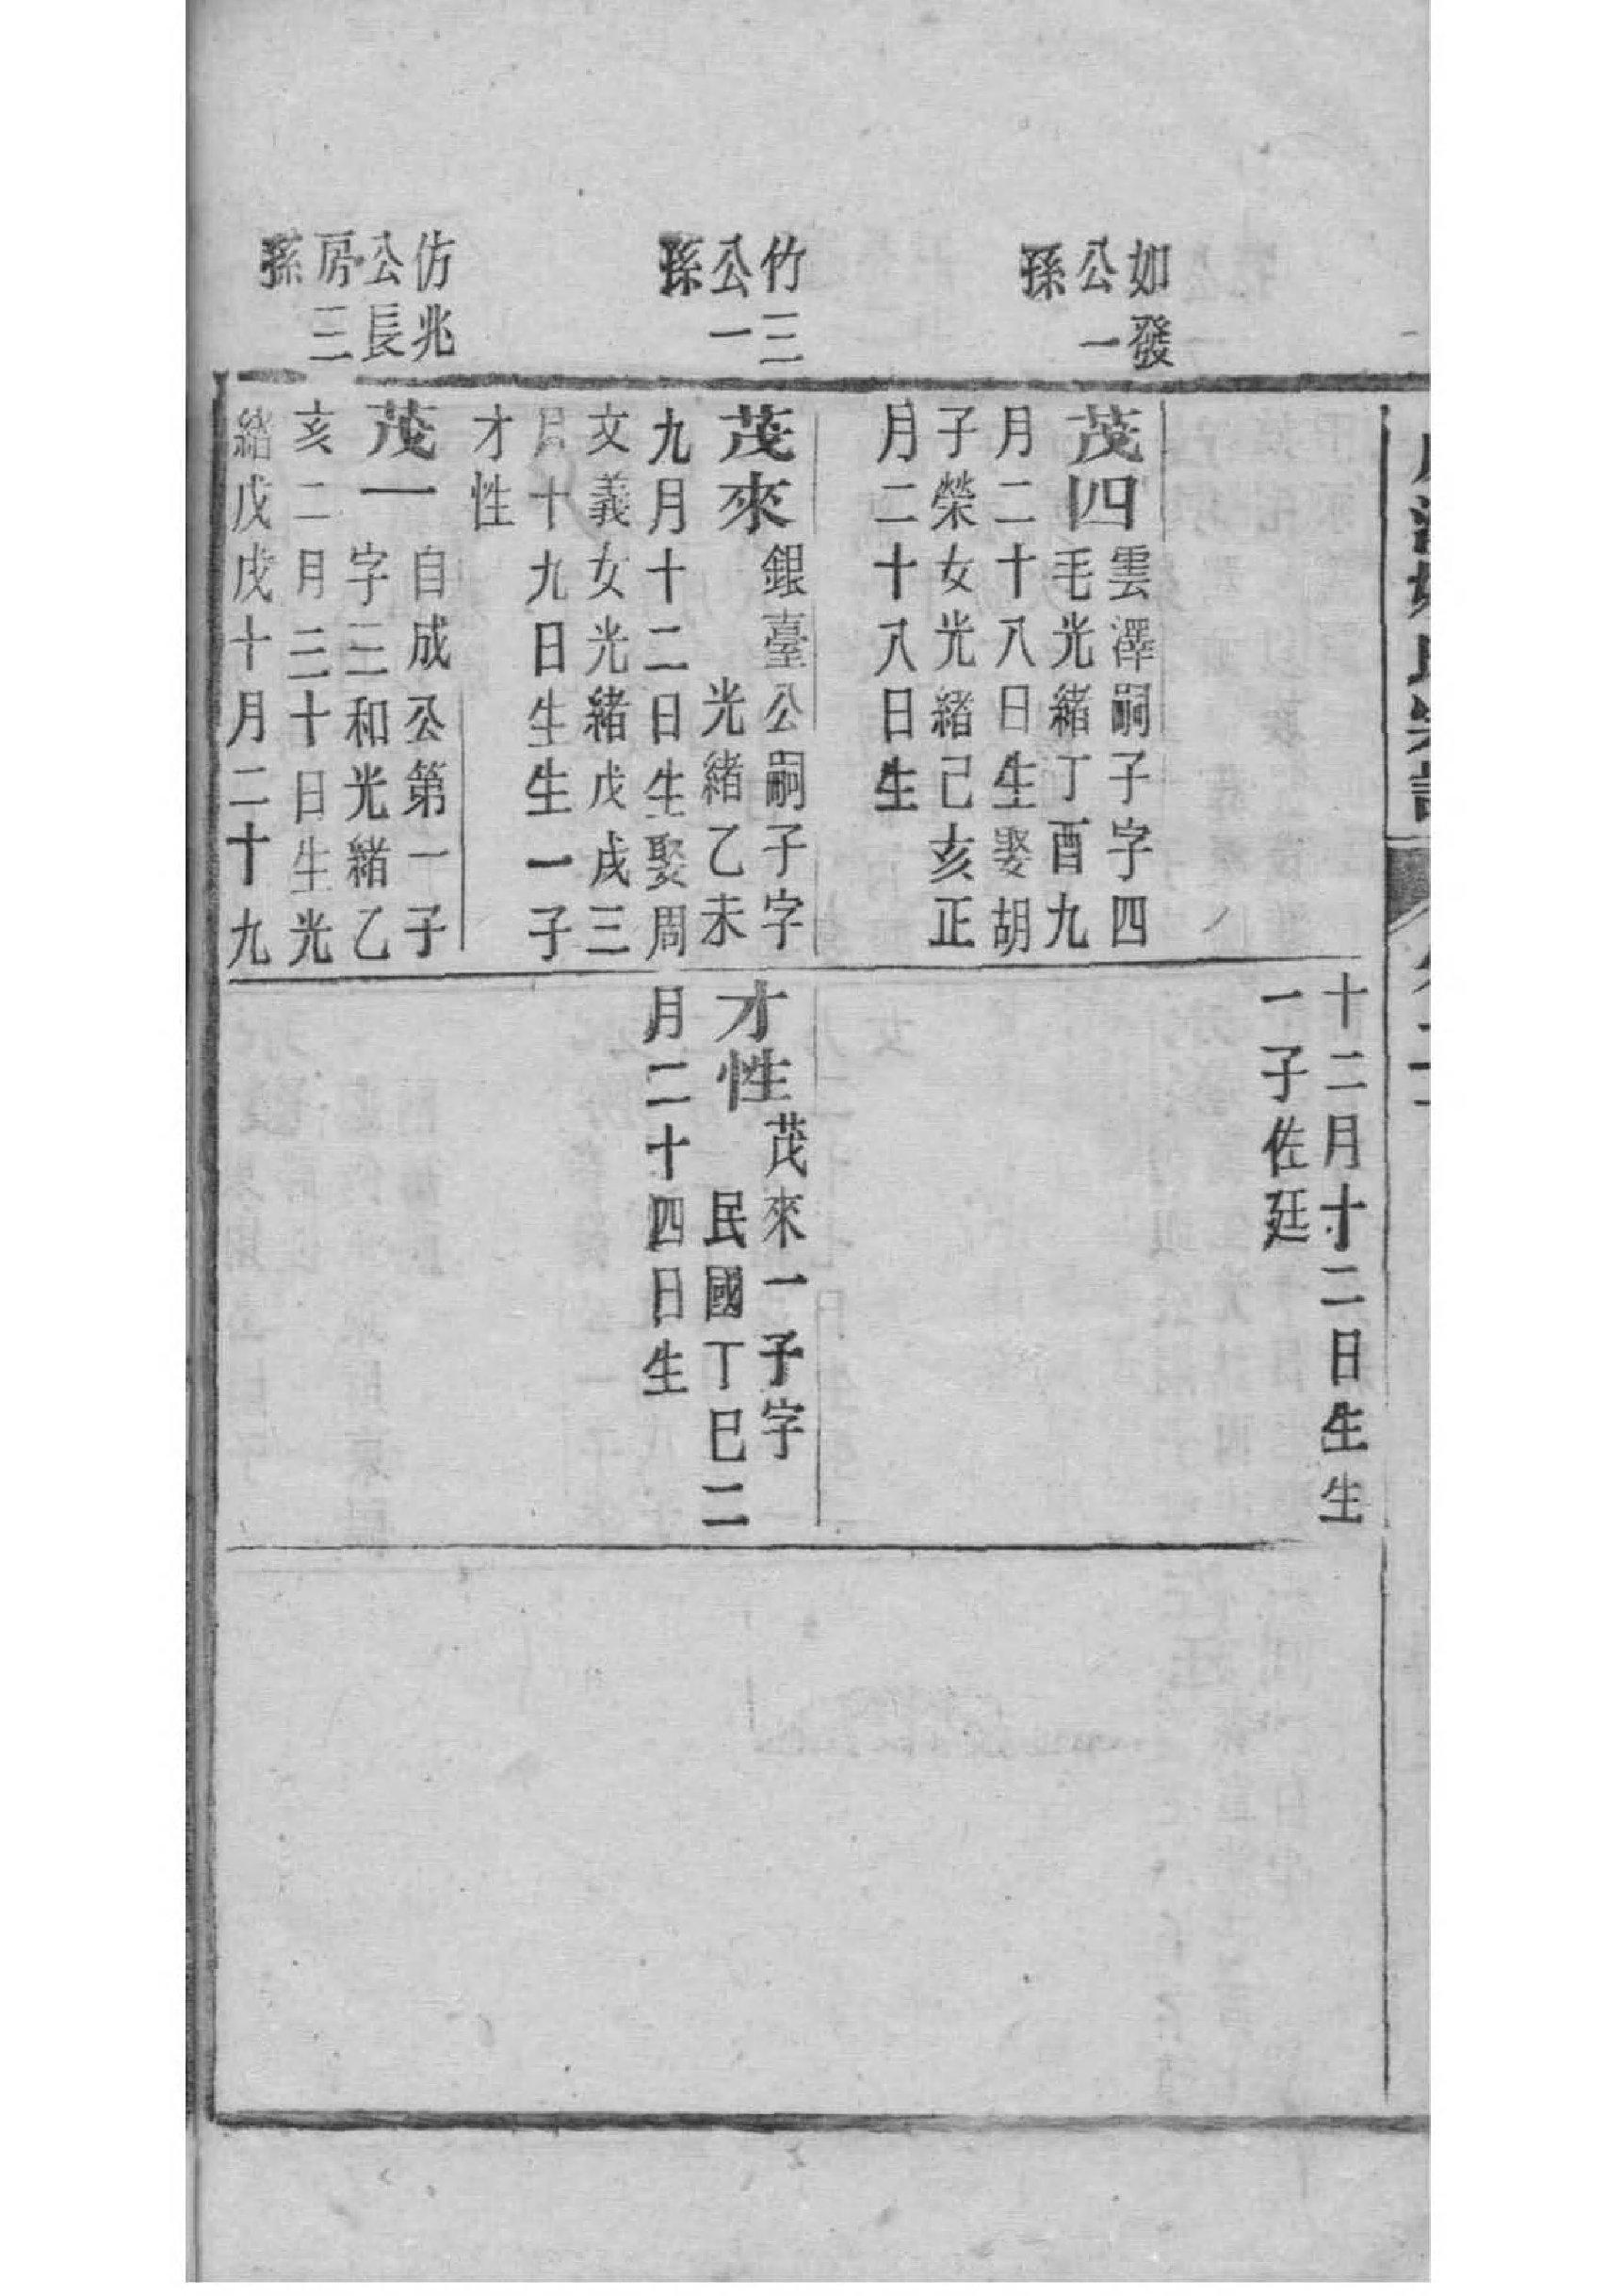 如發
公一
孫
竹三
公一
孫
仿兆
公長
房三
孫
茂四
雲澤嗣子字四
毛光緒丁酉九
月二十八日生娶胡
子榮女光緒己亥正
月二十八日生
茂來
銀臺公嗣子字
光緒乙未
九月十二日生娶周
文義女光緒戊戌三
月十九日生生一子
才性
茂一
自成公第一子
字三和光緒乙
亥二月二十日生光
緒戊戌十月二十九
十二月十二日生生
一子佐廷
才性
茂來一子字
民國丁巳二
月二十四日生